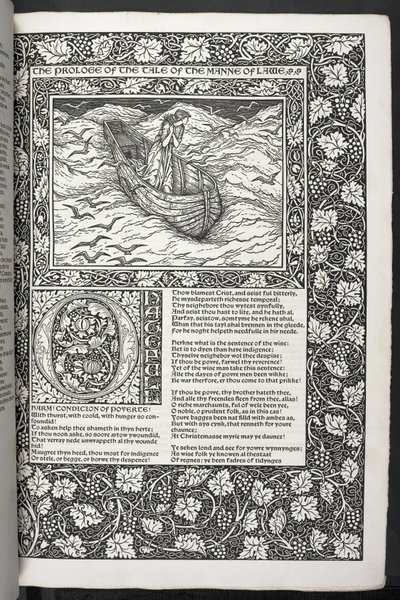 THE PROLOGE OF THE TALE OF THE MANNE OF LAWE
O HATEFUL
HARM! CONDICION OF POVERTE!
With thurst, with coold, with hunger so con-
foundid!
To asken help thee shameth in thyn herte;
If thou noon aske, so soore artow ywoundid,
That verray nede unwrappeth al thy wounde
hid!
Maugree thyn heed, thou most for indigence
Or stele, or begge, or borwe thy despence!
Thou blamest Crist, and seist ful bitterly,
He mysdeparteth richesse temporal;
Thy neighebore thou wytest synfully,
And seist thou hast to lite, and he hath al.
Parfay, seistow, somtyme he rekene shal,
Whan that his tayl shal brennen in the gleede,
For he noght helpeth needfulle in hir neede.
Herkne what is the sentence of the wise:
Bet is to dyen than have indigence;
Thyselve neighebor wol thee despise;
If thou be povre, farwel thy reverence!
Yet of the wise man take this sentence:
Alle the dayes of povre men been wikke;
Be war therfore, er thou come to that prikke!
If thou be povre, thy brother hateth thee,
And alle thy freendes fleen from thee, allas!
O riche marchaunts, ful of wele been yee,
O noble, o prudent folk, as in this cas!
Youre bagges been nat filld with ambes as,
But with sys cynk, that renneth for youre
chaunce;
At Christemasse myrie may ye daunce!
Ye seken lond and see for yowre wynnynges;
As wise folk ye knowen al thestaat
Of regnes; ye been fadres of tidynges